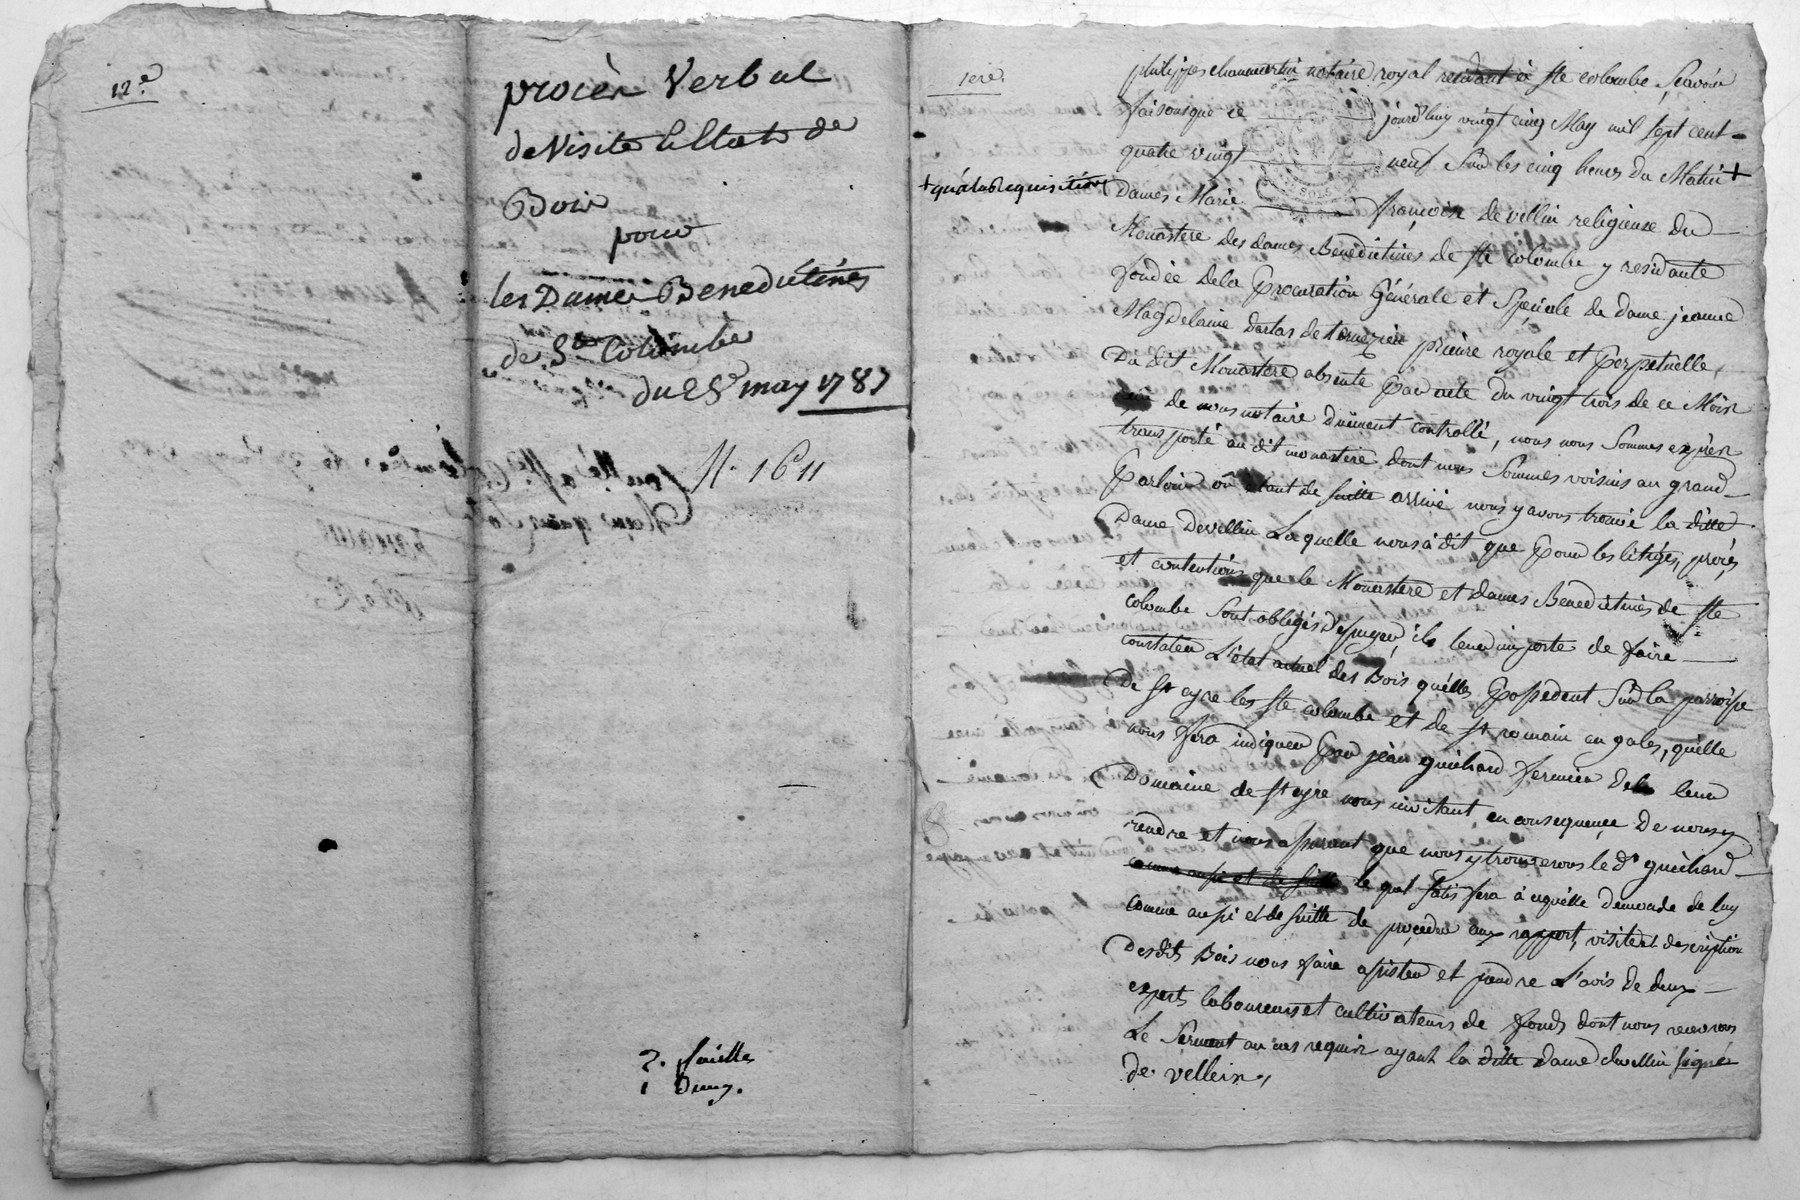 12.e
procès Verbal
de Visite & Etat de
Bois
pour
les Dames Benedictines
de Ste Colombe
du 25 may 1789
N. 1611
2. feuilles
1 Demy.
1ere
philippes chaumartin notaire royal residant à Ste colombe, Sçavoir
faisons que ce jourd'huy vingt cinq May mil sept cent
quatre vingt neuf Sur les cinq heures du Matin +
+ qu'à la Requisition
Dames Marie françoise de vellein religieuse du
Monastere des dames Benedictines de Ste colombe y residante
fondée de la Procuration Générale et Spéciale de dame jeanne
Magdelaine prieure royale et perpetuelle,
Du dit Monastere absente par acte du vingt trois de ce Mois
de nous notaire Duëment controllé, nous nous Sommes exprès
transporté au dit monastere dont nous Sommes voisins au grand
Parloir où étant de suitte arrivé nous y avons trouvé la ditte
Dame Devellin Laquelle nous à dit que pour les litiges, procès
et contentions que le Monastere et dames Benedictines de Ste
colombe Sont obligés d'essuyer, ils leur importe de faire
constater L'état actuel des Bois qu'elles possedent Sur la parroisse
De St cyre les Ste colombe et de St romain en gales, qu'elle
nous fera indiquer par jean guichard fermier de leur
Domaine de St cyre nous invitant en consequence De nous y
rendre et nous assurant que nous y trouverons le Dt guichard
comme aussi et de suitte le quel satisfera à cequ'elle demande de luy
comme aussi et de suitte de proçeder aux rapport, visite et description
Desdits Bois nous faire assister et prendre L'avis de deux
experts laboureurs et cultivateurs de fonds dont nous recevrons
Le Serment au cas requis ayant la ditte dame devellin signée
de vellein,